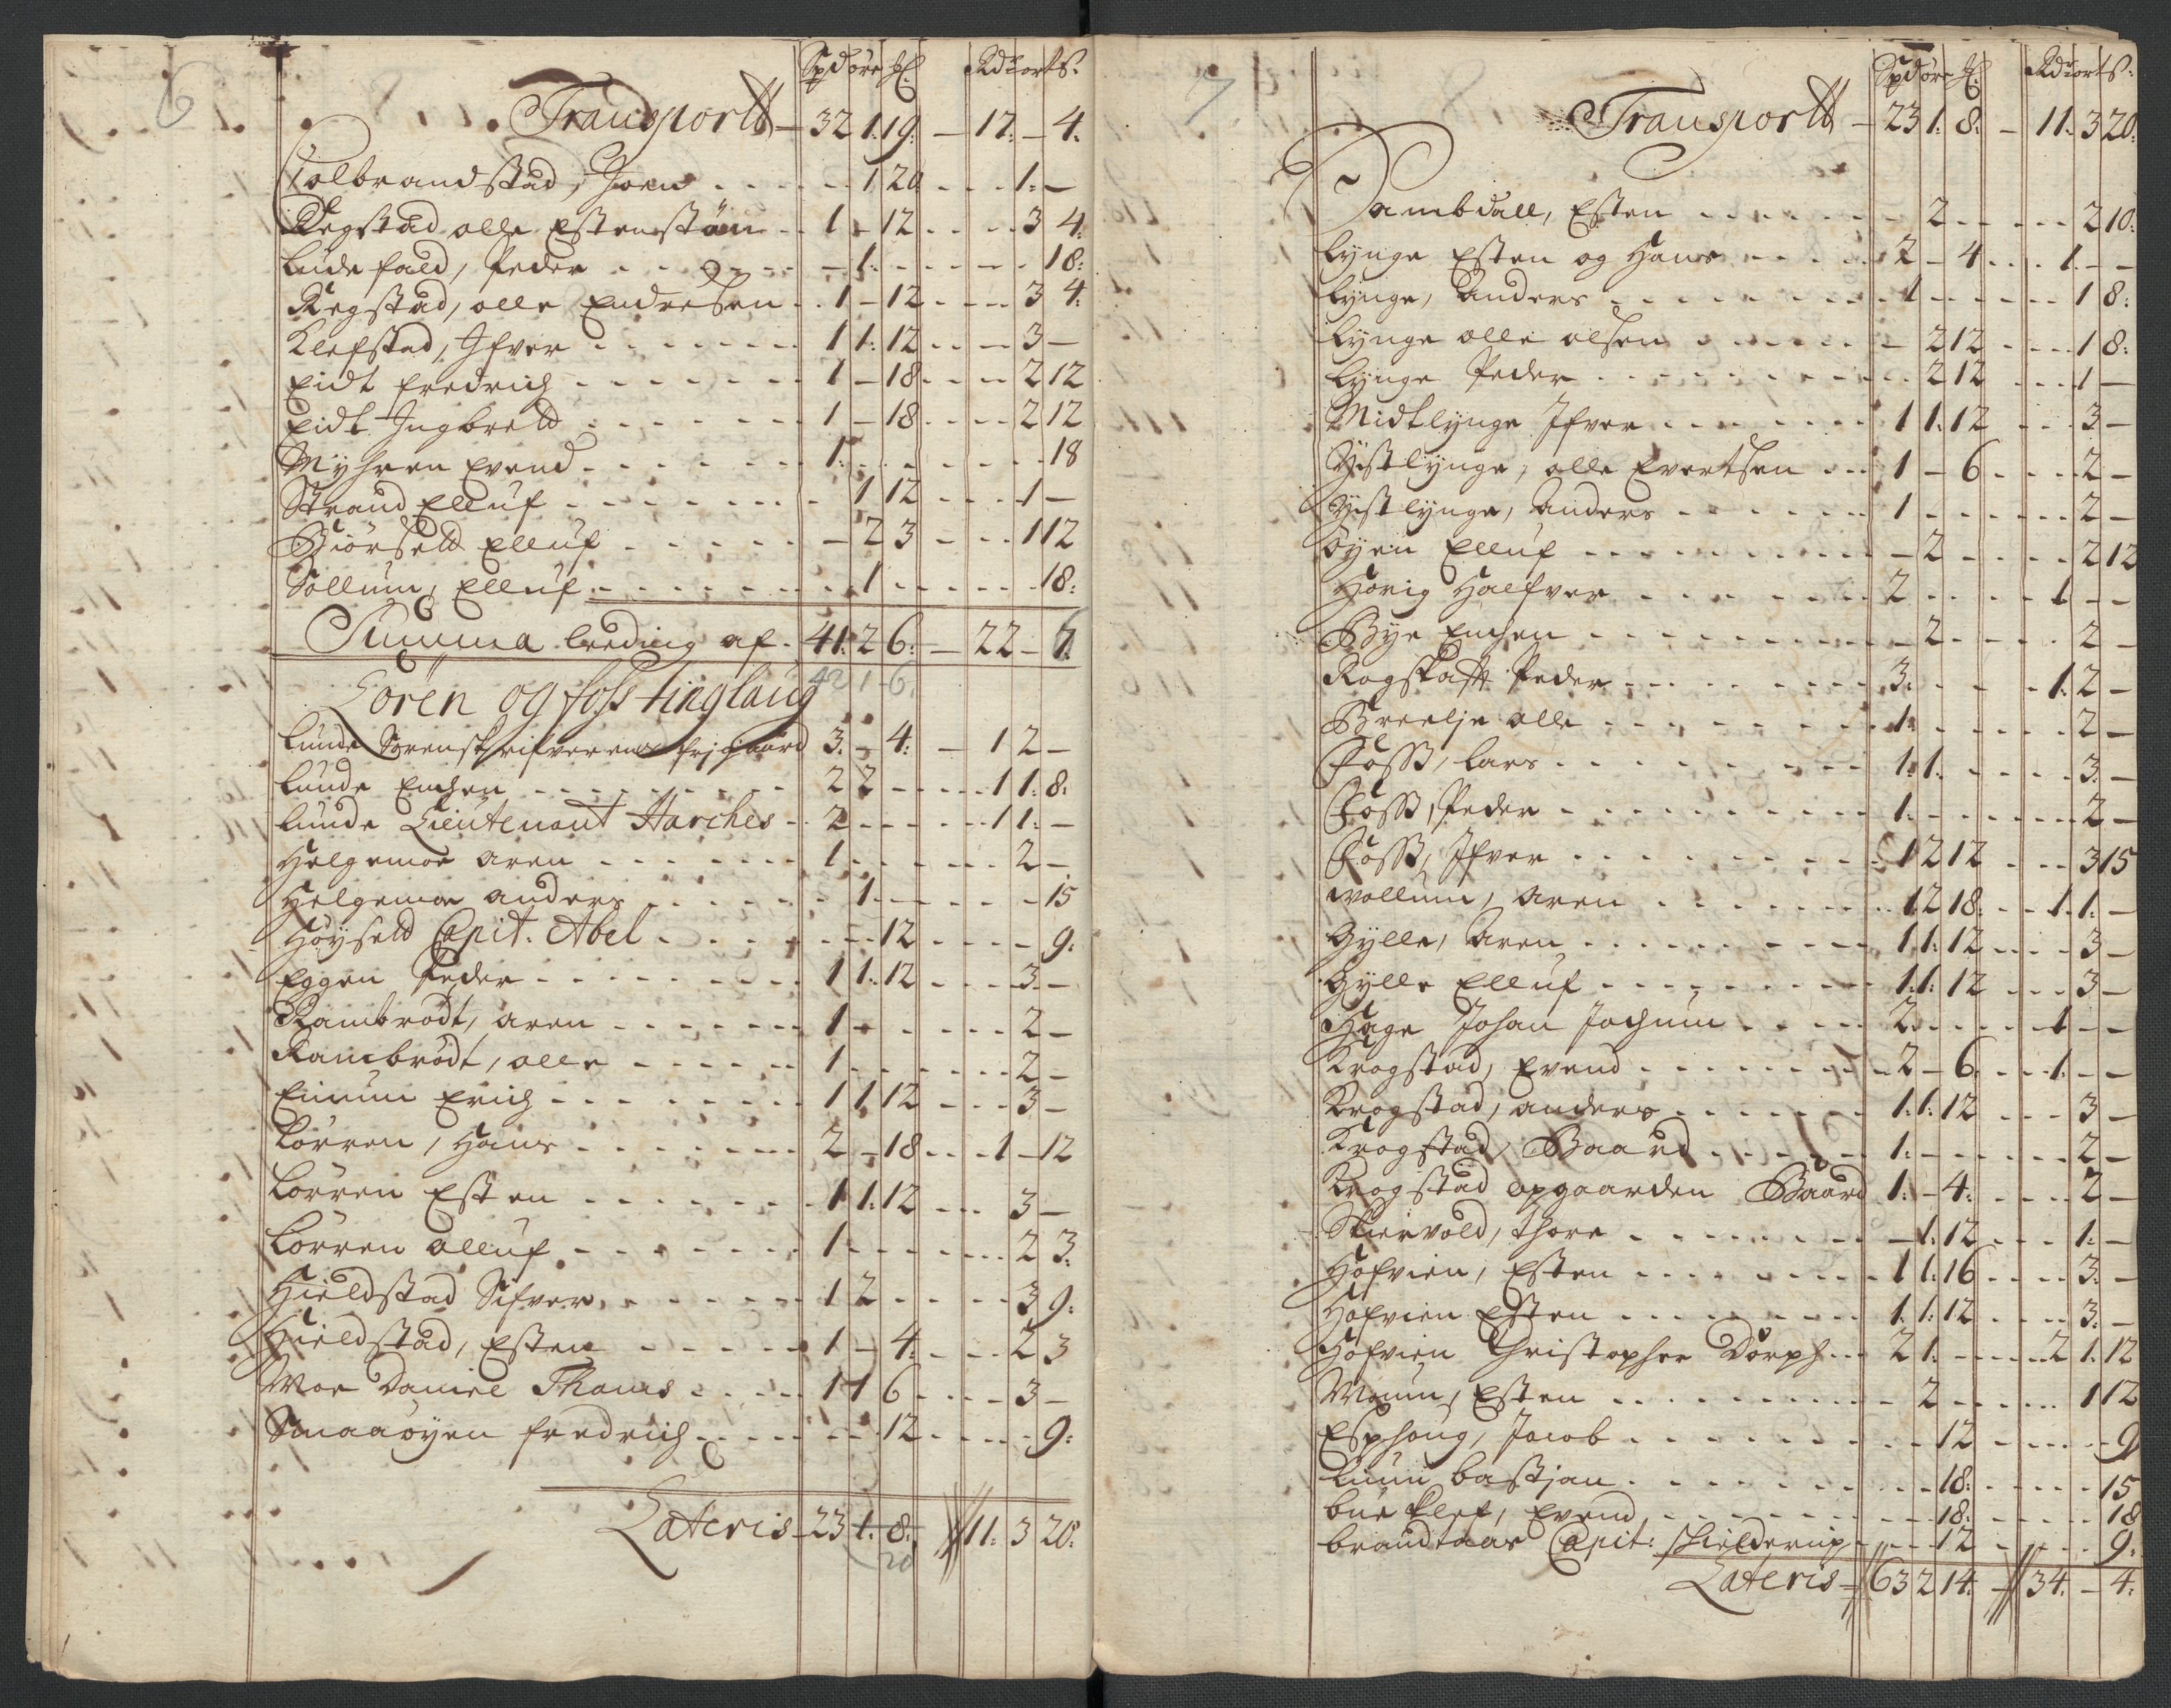 6
Spd ort ß Rdr ort s.
Transportt – 32 1. 19. – 17. – 4.
Colbrandstad, Joen - - - - 1 20 - - - 1. –
Regstad olle Estenstøn - - 1 - 12 - - - - 3 4.
Ludefald, Peder - - - - - 1. - - - - - 18.
Regstad, olle Endresen - - 1 – 12 - - - 3 4.
Klefstad, Ifver - - - - - 1 1. 12 - - - 3 –
Eidt fredrich - - - - - - 1 – 18 - - - 2 12
Eidt Ingbrett - - - - - - 1 – 18 - - - 2 12
Myhren Evend - - - - - - 1. - - - - - - 18
Strand Elluf - - - - - - - 1 12 - - - 1 –
Biørseld Elluf - - - - - - – 2 3 - - - 1 12
Sollum, Elluf - - - - - - - 1 - - - - - 18.
Summa leeding af - 41. 2 6. – 22 – 7.
42 1 6.
Loren og foss tinglaug
Lunde Sorenskrifverens frj gaard 3. - 4. – 1 2 –
Lunde Enchen - - - - - - 2 2 - - - - 1 1. 8.
Lunde Lieutenant Harches - - 2 - - - - - 1 1. –
Helgemoe aren - - - - - - 1 - - - - - 2 –
Helgemoe anders - - - - - - 1. - - - - - 15
Høyseld Capit. Abel - - - - - - 12 - - - - 9.
Eggen Peder - - - - - - - 1 1. 12 - - - 3 –
Rambrodt, aren - - - - - - 1 - - - - - 2 –
Rambrodt, olle - - - - - - 1 - - - - - 2 –
Emum Erich - - - - - - - 1 1. 12 - - - 3 –
Lorren, Hans - - - - - - 2 – 18 - - - 1 – 12
Lorren Esten - - - - - - 1 1. 12 - - - 3 –
Lorren olluf - - - - - - 1 - - - - - 2 3.
Hieldstad Sifver - - - - - 1 2 - - - - 3 9.
Hieldstad, Esten - - - - - 1 – 4. - - - 2 3
Moe Daniel Thams - - - - 1 1 6 - - - - 3 –
Smaaøyen fredrich - - - - - - 12 - - - - 9.
Lateris – 23 1. 8. 11. 3 20.
20
7
Spd ort ß Rdr ort s.
Transportt – 23 1. 8. – 11. 3 20.
Dambdall, Esten - - - - - - 2 - - - - - 2 10.
Lynge Esten og Hans - - - - 2 – 4 - - - 1. – –
Lynge, Anders - - - - - - - 1 - - - - - 1 8.
Lynge olle olsen - - - - - – 2 12 - - - 1 8.
Lynge Peder - - - - - - - - 2 12 - - - 1 –
Midtlynge Ifver - - - - - - 1 1. 12 - - - 3 –
Ystlynge, olle Evertsen - - - 1 – 6 - - - 2 –
Ystlynge, Anders - - - - - 1 - - - - - 2 –
Øyen Elluf - - - - - - - – 2 - - - - 2 12
Horig Halfver - - - - - - 2 - - - - - 1 – –
Bye Enchen - - - - - - - – 2 - - - - 2 –
Rogstatt Peder - - - - - - 3. - - - - 1. 2 –
Breelje olle - - - - - - - 1. - - - - 2 –
Foss, Lars - - - - - - - - 1. 1. - - - - 3. –
Foss, Peder - - - - - - - 1. - - - - - 2 –
Foss, Ifver - - - - - - - 1 2 12 - - - 3 15
Wollum, aren - - - - - - - 1 2 18. - - 1. 1. –
Gylle, aren - - - - - - - 1 1. 12 - - - 3 –
Gylle Elluf - - - - - - - 1. 1. 12 - - - 3 –
Hage Johan Jochum - - - - 2 - - - - - 1 – –
Krogstad, Evend - - - - - - 2 – 6 - - - 1. – –
Krogstad, anders - - - - - - 1. 1. 12 - - - 3 –
Krogstad, Baard - - - - - - 1. - - - - - 2 –
Krogstad opgaarden Baard 1. – 4. - - - 2 –
Skiervold, thore - - - - - - – 1. 12 - - - 1. –
Hofvien, Esten - - - - - - - 1 1. 16 - - - 3. –
Hofvien Esten - - - - - - - 1. 1. 12 - - - 3. –
Hofvien Christopher Dorph - - - 2 1. - - - - 2 1. 12
Moum, Esten - - - - - - - - 2 - - - - - 1 12
Esphoug, Jacob - - - - - - - - 12 - - - - 9
Luun bastjan - - - - - - - - - 18. - - - - 15
bueklef, Evend - - - - - - - - 18. - - - - 18
brandtaas Capit: schielderup - - - 12 - - - - 9.
Lateris – 63 2 14. – 34. – 4.